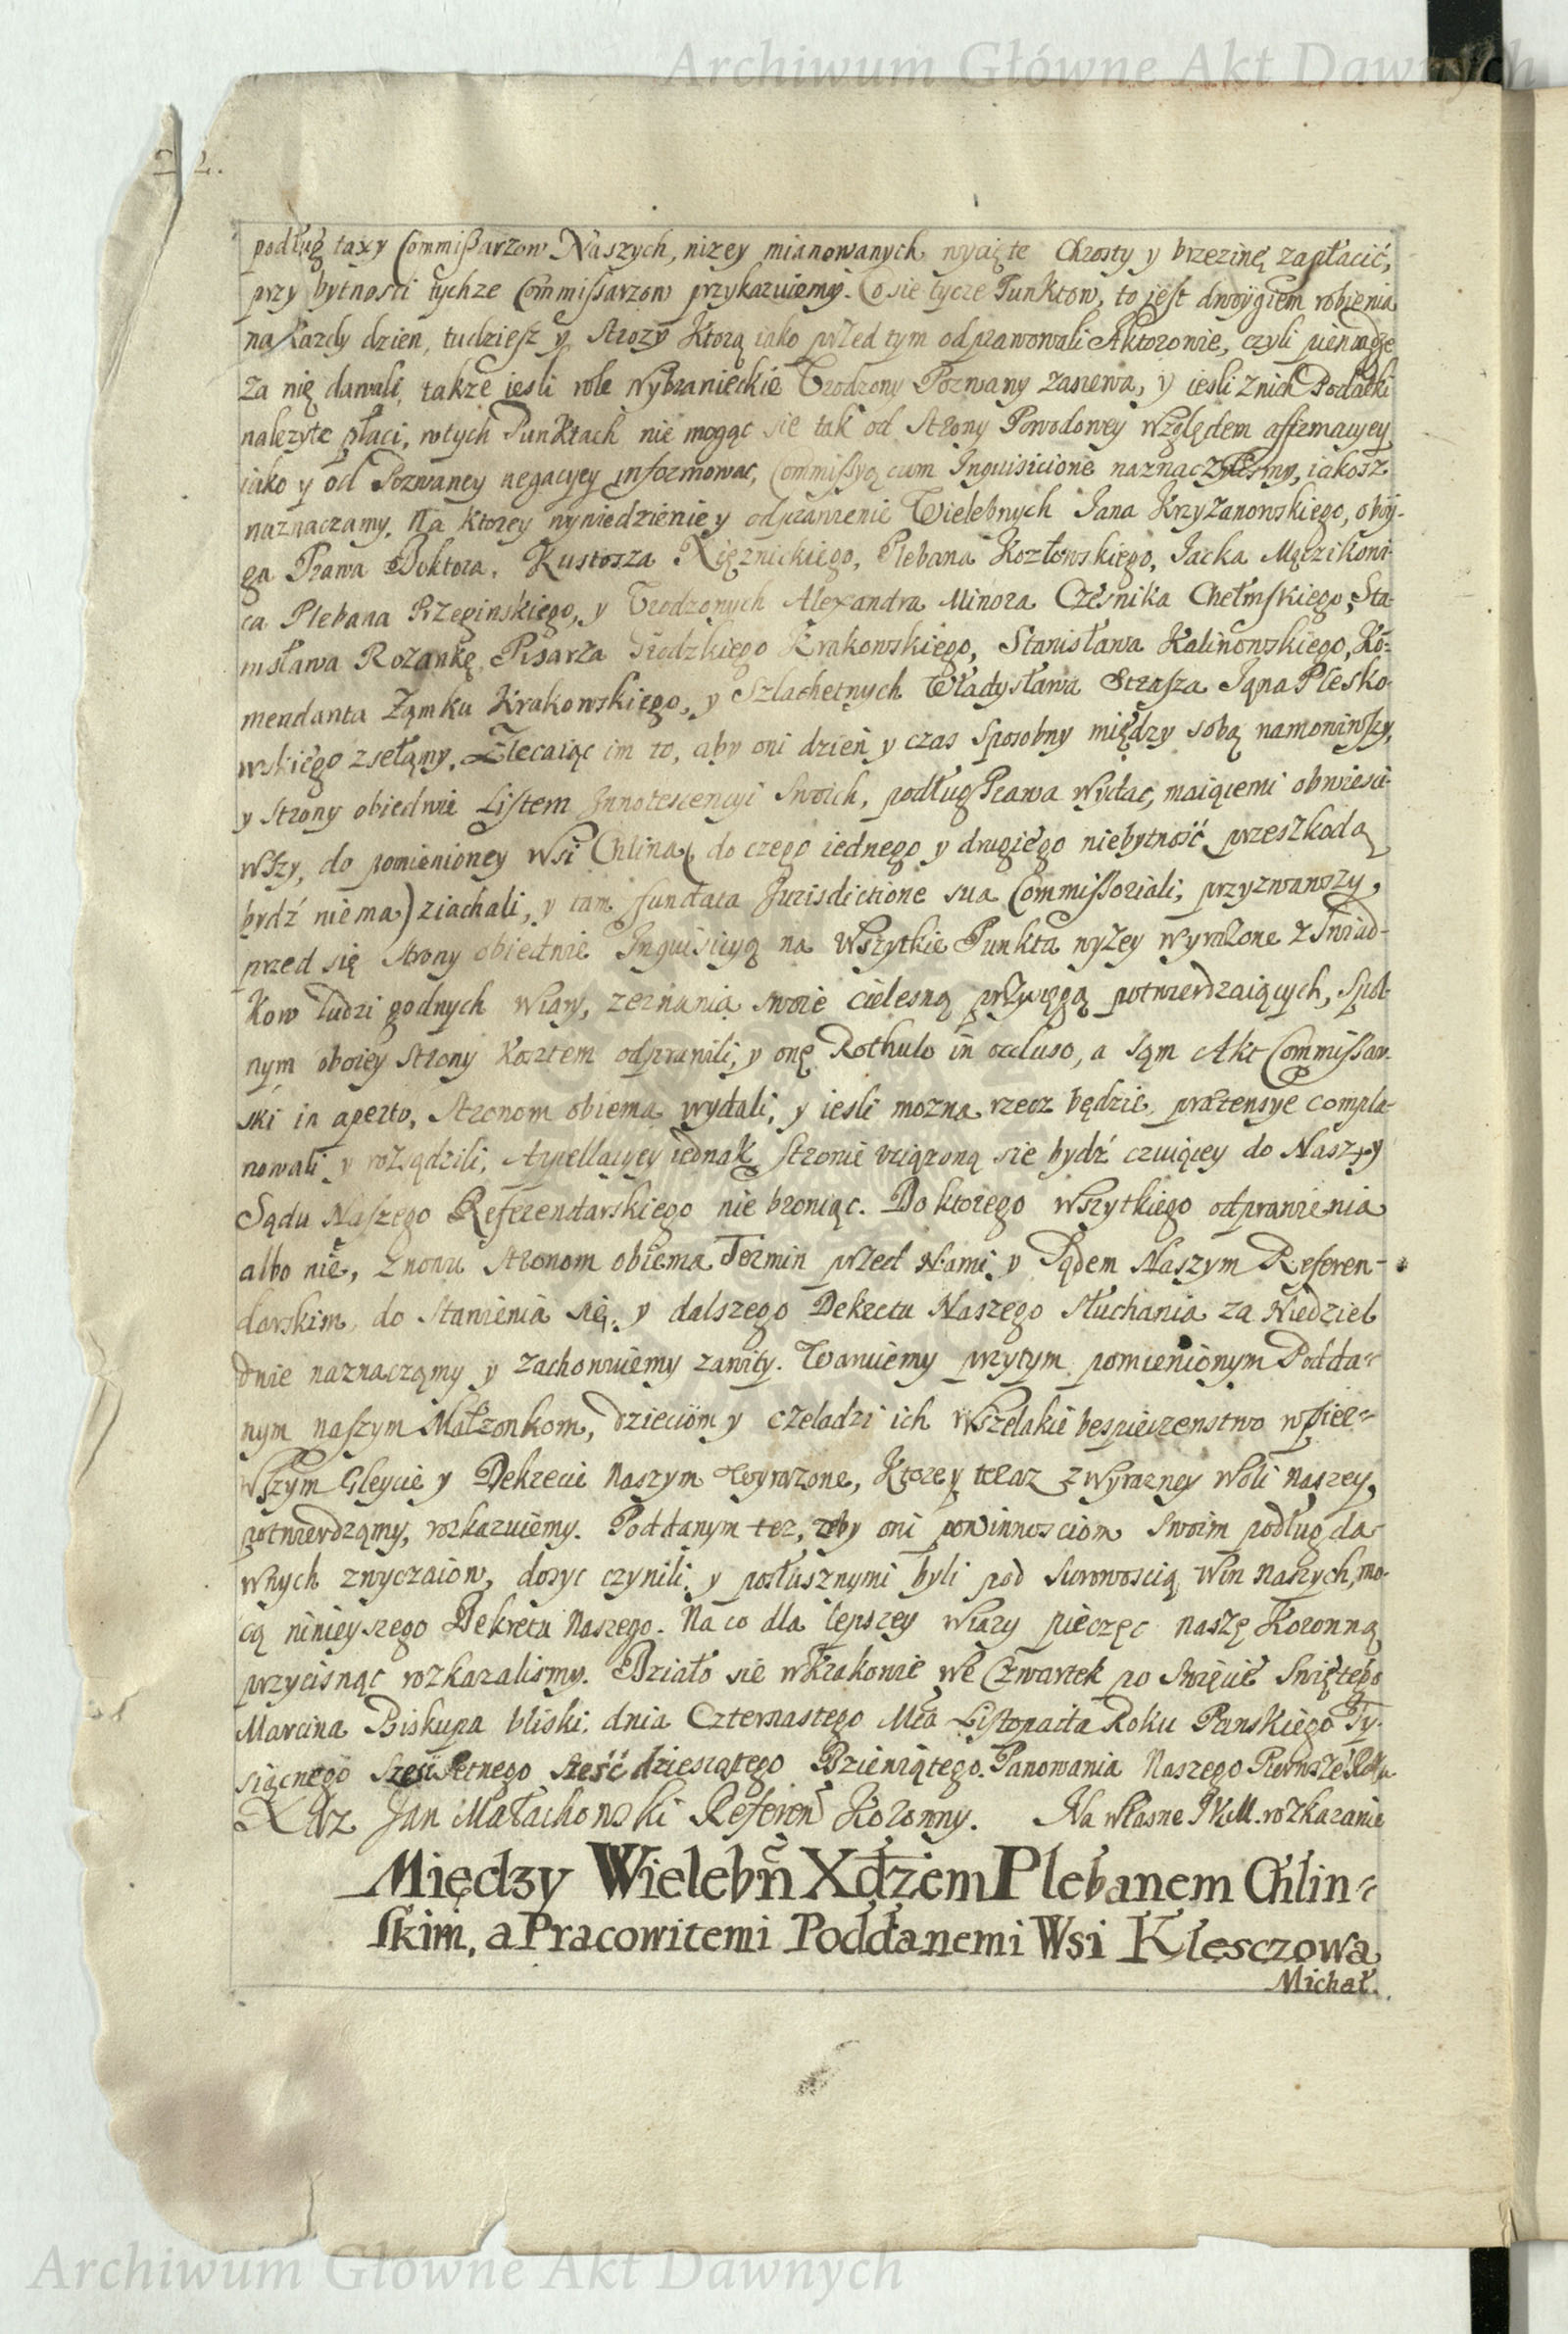 Archiwum Główne Akt Dawnych
2.
podług taxy Commißarzow Naszych, nizey mianowanych wycięte Chrosty y brzezinę zapłacić,
przy bytnosci tychze Commissarzow przykazuiemy. Co sie tycze Punktow, to jest dwoygiem robienia
na kazdy dzien, tudziesz y strozy Ktorą iako przed tym odprawowali Aktorowie, czyli pieniądze
za nię dawali, takze iesli role Wybranieckie Urodzony Pozwany zasiewa, y iesli znich Podatki
nalezyte płaci, wtych Punktach nie mogąc sie tak od Strony Powodowey względem affirmacyey
iako y od Pozwaney negacyey informowac, Commissyą cum Inquisicione naznaczylismy, iakosz
naznaczamy. Na ktorey wyniedzienie y odprawienie Wielebnych Jana Krzyzanowskiego, oboy-
ga Prawa Doktora, Kustosza Xięznickiego, Plebana Kozłowskiego, Jacka
ca Plebana Rzepinskiego, y Urodzonych Alexandra Minora Czesnika Chełmskiego, Sta-
nisława Rozankę Pisarza Grodzkiego Krakowskiego, Stanisława Kalinowskiego, Ko-
mendanta Zamku Krakowskiego, y Szlachetnych Władysława Strasza Jana Plesko-
wskiego zsełamy. Zlecaiąc im to, aby oni dzień y czas sposobny między sobą namowiwszy,
y strony obiedwie Listem Innotescencyi Swoich, podług Prawa wydac, maiącemi obwiesci-
wszy, do pomienioney Wsi Chlina (do czego iednego y drugiego niebytność przeszkodą
bydź niema) ziachali, y tam fundata Jurisdictione sua Commissoriali, przyzwawszy,
przed się strony obiedwie Inquisicyą na Wszytkie Punkta wyzey wyrazone z Swiad-
kow ludzi godnych wiary, zeznania swoie cielesną przysięgą potwierdzaiących, spol-
nym oboiey strony kosztem odprawili, y onę Rothulo in occluso, a sąm Akt Commissar-
ski in aperto, stronom obiema wydali, y iesli mozna rzecz będzie, praetensye compla-
nowali y rozsądzili, Appellacyey iednak stronie uciązoną sie bydź czuiącey do Nas y
Sądu Naszego Referendarskiego nie broniąc. Do ktorego wszytkiego odprawienia
albo nie, znowu stronom obiema Termin przed Nami y Sądem Naszym Referen-
darskim do stawienia się y dalszego Dekretu Naszego słuchania za Niedziel
dwie naznaczamy y zachowuiemy zawity. Waruiemy przytym pomienionym Podda-
nym naszym Małzonkom, dzieciom y czeladzi ich wszelakie bespieczenstwo wpier-
wszym Gleycie y Dekrecie naszym wyrazone, Ktore y teraz z wyrazney woli naszey
potwierdzamy, rozkazuiemy. Poddanym tez, zeby oni powinnosciom swoim podług da-
wnych zwyczaiow, dosyc czynili, y posłusznymi byli pod surowoscią win naszych, mo-
cą ninieyszego Dekretu Naszego. Na co dla lepszey wiary pieczęc naszę Koronną
przycisnąc rozkazalismy. Działo sie w Krakowie we Czwartek po Swięcie Swiętego
Marcina Biskupa bliski, dnia Czternastego Mca Listopada Roku Panskiego Ty-
siącnego Szescsetnego sześćdziesiątego Dziewiątego. Panowania Naszego Pierwszeo Roku
Xdz Jan Małachowski Referen Koronny. Na własne J K M. rozkazanie
Między Wielebn̄ Xdzem Plebanem Chlin-
skim, a Pracowitemi Poddanemi Wsi Klesczowa
Michał.
Archiwum Główne Akt Dawnych